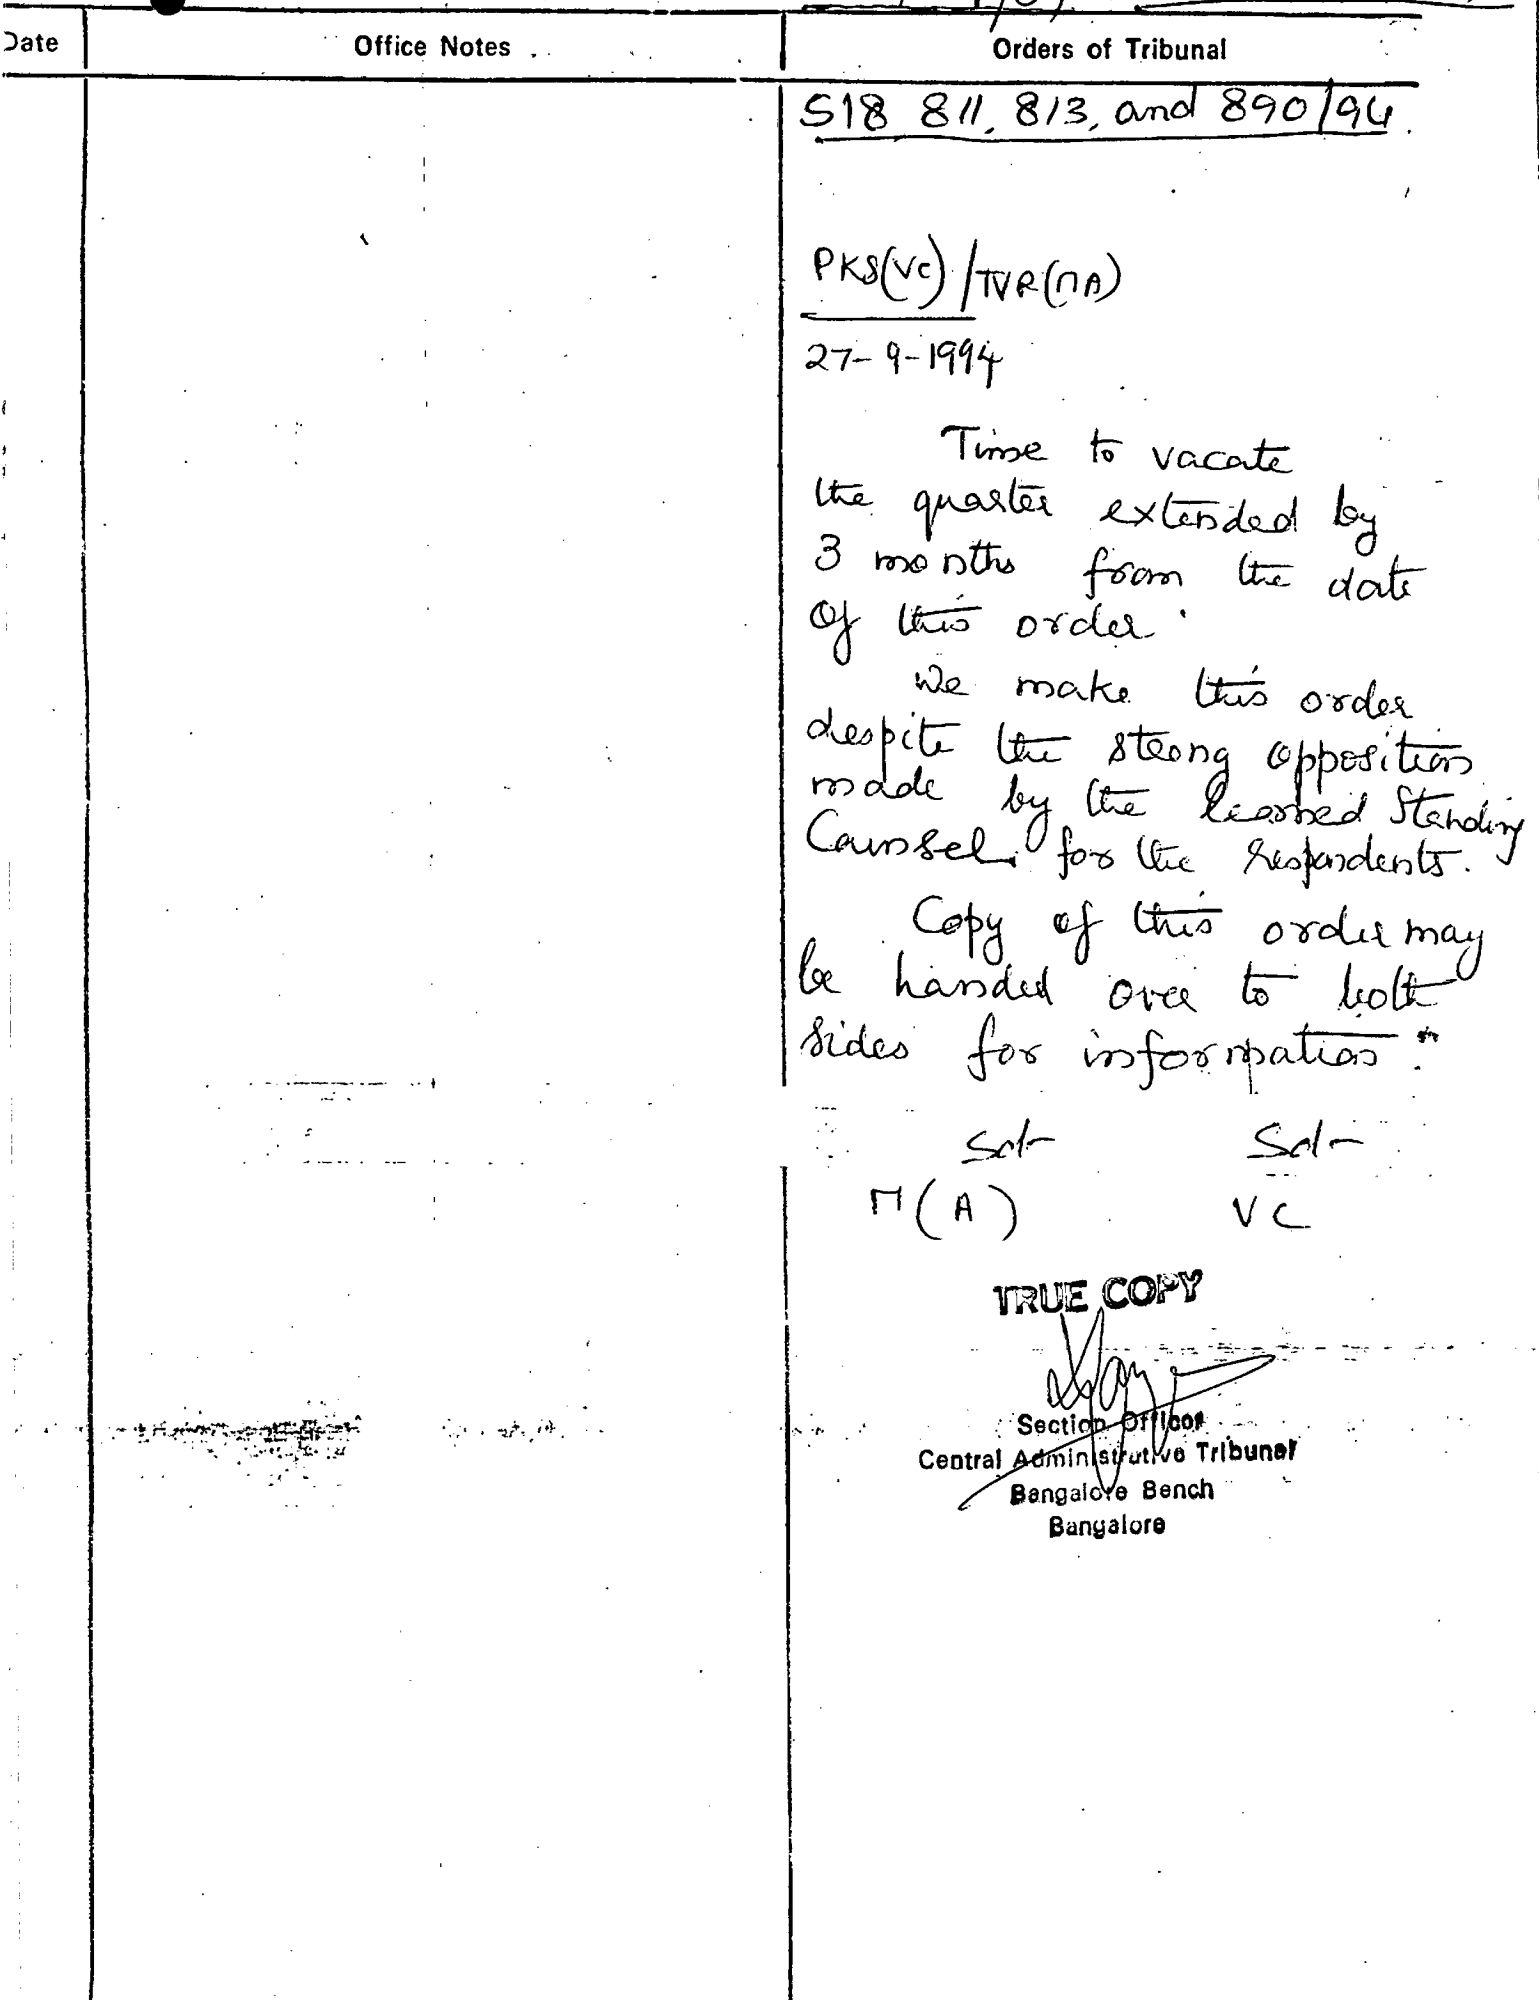 Date Office Notes Orders of Tribunal
518 811, 813, and 890/94
PKS(VC)/TVR(MA)
27-9-1994
Time to vacate
the quarter extended by
3 months from the date
of this order.
We make this order
despite the strong opposition
made by the learned Standing
Counsel for the respondents.
Copy of this order may
be handed over to both
sides for information."
Sd- Sd-
M(A) VC
TRUE COPY
Section Officer
Central Administrative Tribunal
Bangalore Bench
Bangalore